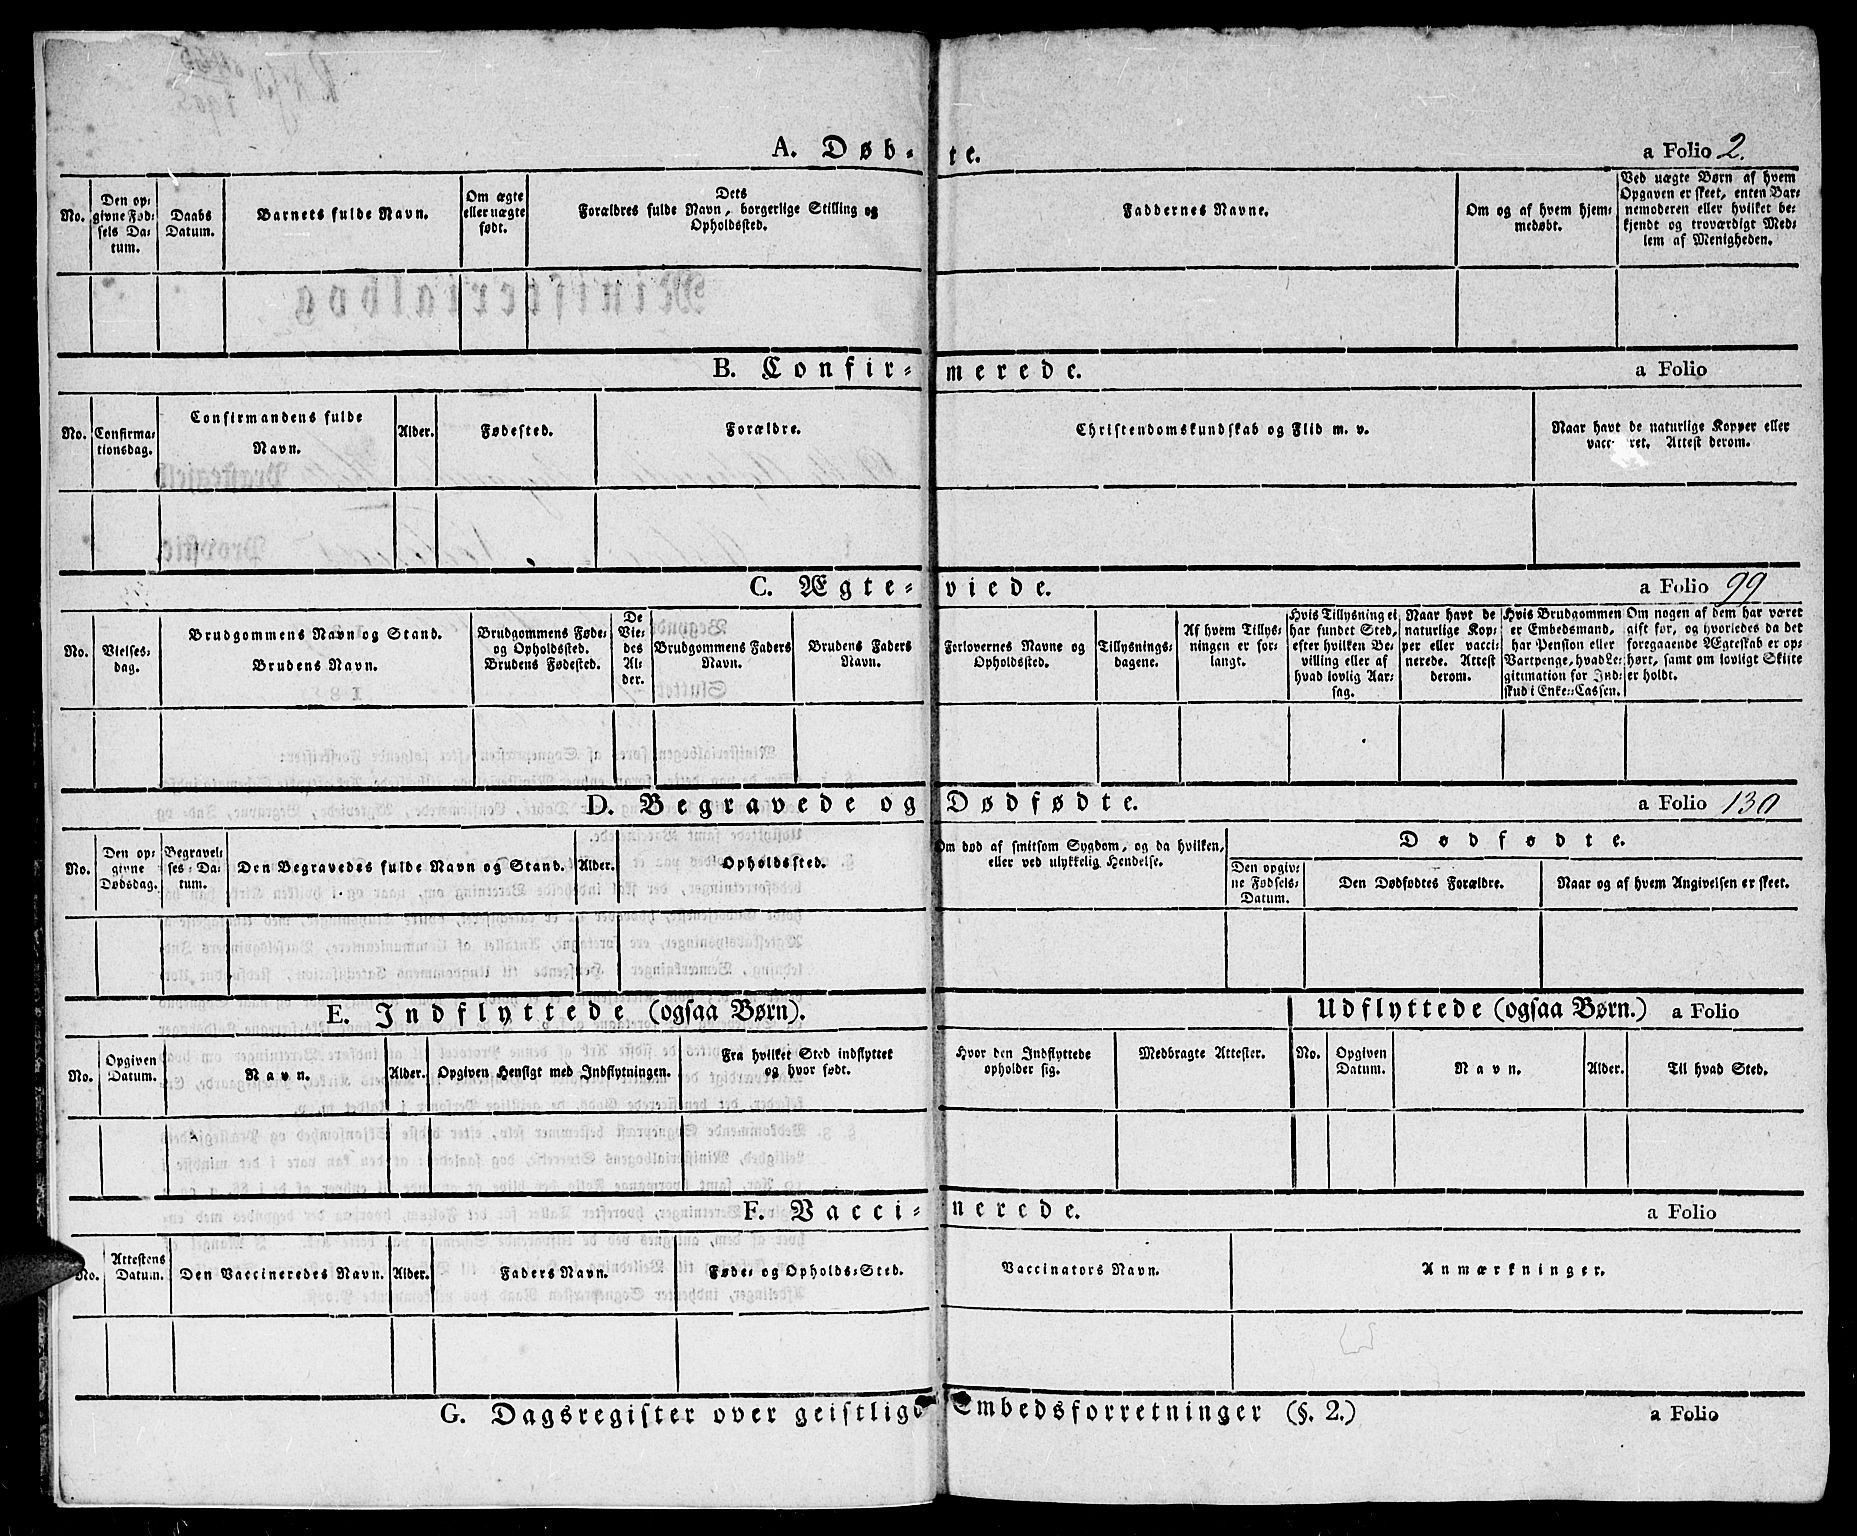 A. Døb-te. a Folio 2.
No.
Den op-
givne Fød-
sels Da-
tum.
Daabs
Datum.
Barnets fulde Navn.
Om ægte
eller uægte
født.
Dets
Forældres fulde Navn, borgerlige Stilling og
Opholdssted.
Faddernes Navne.
Om og af hvem hjem-
medøbt.
Ved uægte Børn af hvem
Opgaven er skeet, enten Bar-
nemoderen eller hvilket be-
kjendt og troværdigt Med-
lem af Menigheden.
B. Confir-merede. a Folio
No.
Confirma-
tionsdag.
Confirmandens fulde
Navn.
Alder.
Fødested.
Forældre.
Christendomskundskab og Flid m. v.
Naar havt de naturlige Kopper eller
ret. Attest derom.
C. Ægte-viede. a Folio 99
No.
Vielses-
dag.
Brudgommens Navn og Stand.
Brudens Navn.
Brudgommens Føde-
og Opholdssted.
Brudens Fødested.
De
Vie-
des
Al-
der.
Brudgommens Faders
Navn.
Brudens Faders
Navn.
Forlovernes Navne og
Opholdssted.
Tillysnings-
dagene.
Af hvem Tillys-
ningen er for-
langt.
Hvis Tillysning ei
har fundet Sted,
efter hvilken Be-
villing eller af
hvad lovlig Aar-
sag.
Naar havt de
naturlige Kop-
per eller vacci-
nerede. Attest
derom.
Hvis Brudgommen
er Embedsmand,
har Pension eller
Vartpenge, hvad Le-
gitimation for Ind-
skud i Enke-Cassen.
Om nogen af dem har været
gift før, og hvorledes da det
foregaaende Ægteskab er op-
hørt, samt om lovligt Skifte
er holdt.
D. Begravede og Dødfødte. a Folio 130
No.
Den op-
givne
Dødsdag.
Begravel-
ses-Da-
tum.
Den Begravedes fulde Navn og Stand.
Alder.
Opholdssted.
Om død af smitsom Sygdom, og da hvilken,
eller ved ulykkelig Hendelse.
Dødfødte.
Den opgiv-
ne Fødsels-
Datum.
Den Dødfødtes Forældre.
Naar og af hvem Angivelsen er skeet.
E. Indflyttede (ogsaa Børn). Udflyttede (ogsaa Børn.) a Folio
No.
Opgiven
Datum.
Navn.
Alder.
Opgiven Hensigt med Indflytningen.
Fra hvilket Sted indflyttet
og hvor født.
Hvor den Indflyttede
opholder sig.
Medbragte Attester.
No.
Opgiven
Datum.
Navn.
Alder.
Til hvad Sted.
F. Vacci-nerede. a Folio
No.
Attestens
Datum.
Den Vaccineredes Navn.
Alder.
Faders Navn.
Føde- og Opholds-Sted.
Vaccinators Navn.
Anmærkninger.
G. Dagsregister over geistlige Embedsforretninger (§. 2.) a Folio